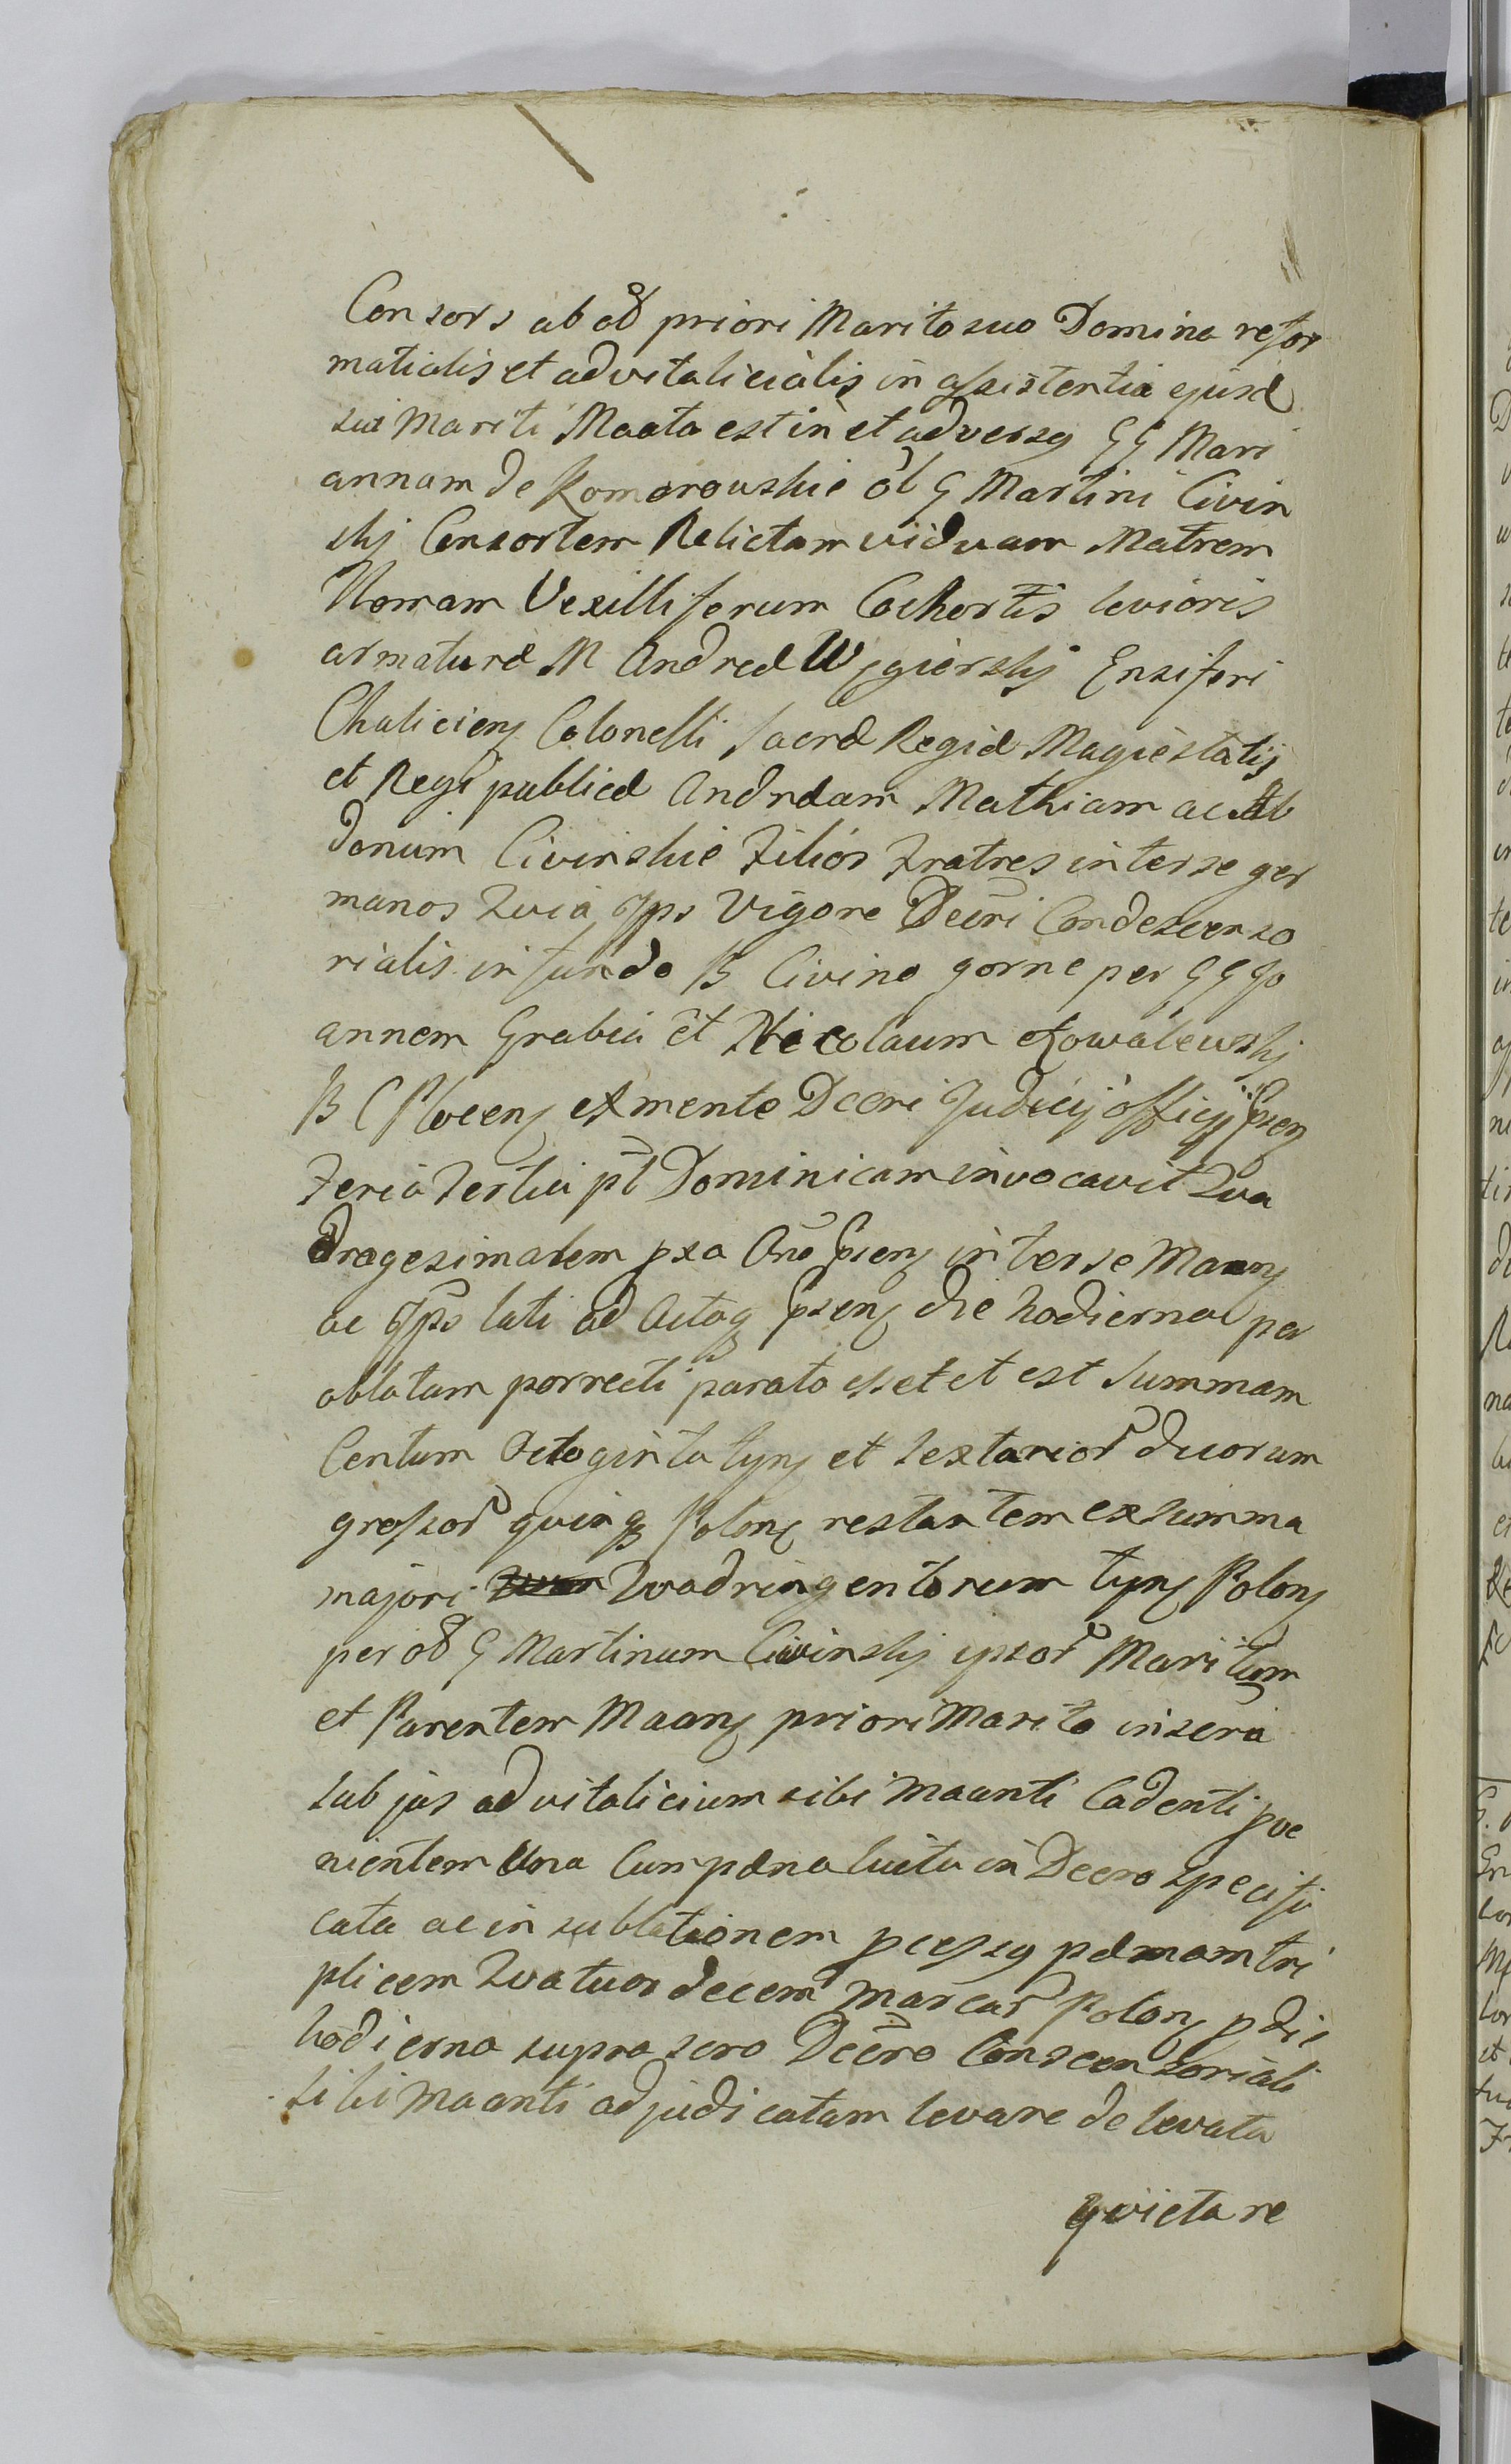 Consors ab od priori Marito suo Domina refor
matialis et advitalicialis in assistentia ejusd
sui Mariti Maata est in et adversq GG Mari
annam de Komorowskie ol G Martini Civin
skij Consortem Relictam viduam Matrem
Nonam Vexilliferum Cohortis levioris
armaturæ M Andreæ Węgierskij Ensiferi
Chaliciens Colonelli Sacræ Regiæ Magiestatis
et Regi publicæ Andræam Mathiam ac Ab
donum Civinskie Filios Fratres inter se ger
manos Quia Ips Vigore Decri Condescenso
rialis in fundo B Civino gorne per GG Jo
annem Grabia et Nicolaum Kowalewskij
B C Plocens ex mente Dcori Judicij officij psens
Feria tertia pt Dominicam invocavit Qua
dragesimalem pxa Ano psens inter se Maans
ac Ips lati ad Actaq psens die hodierna per
oblatam porrecti parata esset et est Summam
Centum Octoginta tyns et sextarior duorum
grossor quinq Polons restantem ex summa
majori Quadringentorum tyns Polons
per od G Martinum Civinskij ipsor Maritum
et Parentem Maans priori Marito inscra
sub jus advitalicium sibi Maanti Cadenti pve
nientem Una Cum pæna luita in Decro specifi
cata ac in sublationem pcessq pæmam tri
plicem Quatuordecem marcar Polons p die
hodierna supra scro Decro Conscensoriali
sibi Maanti adjudicatam levare de levata
qvietare